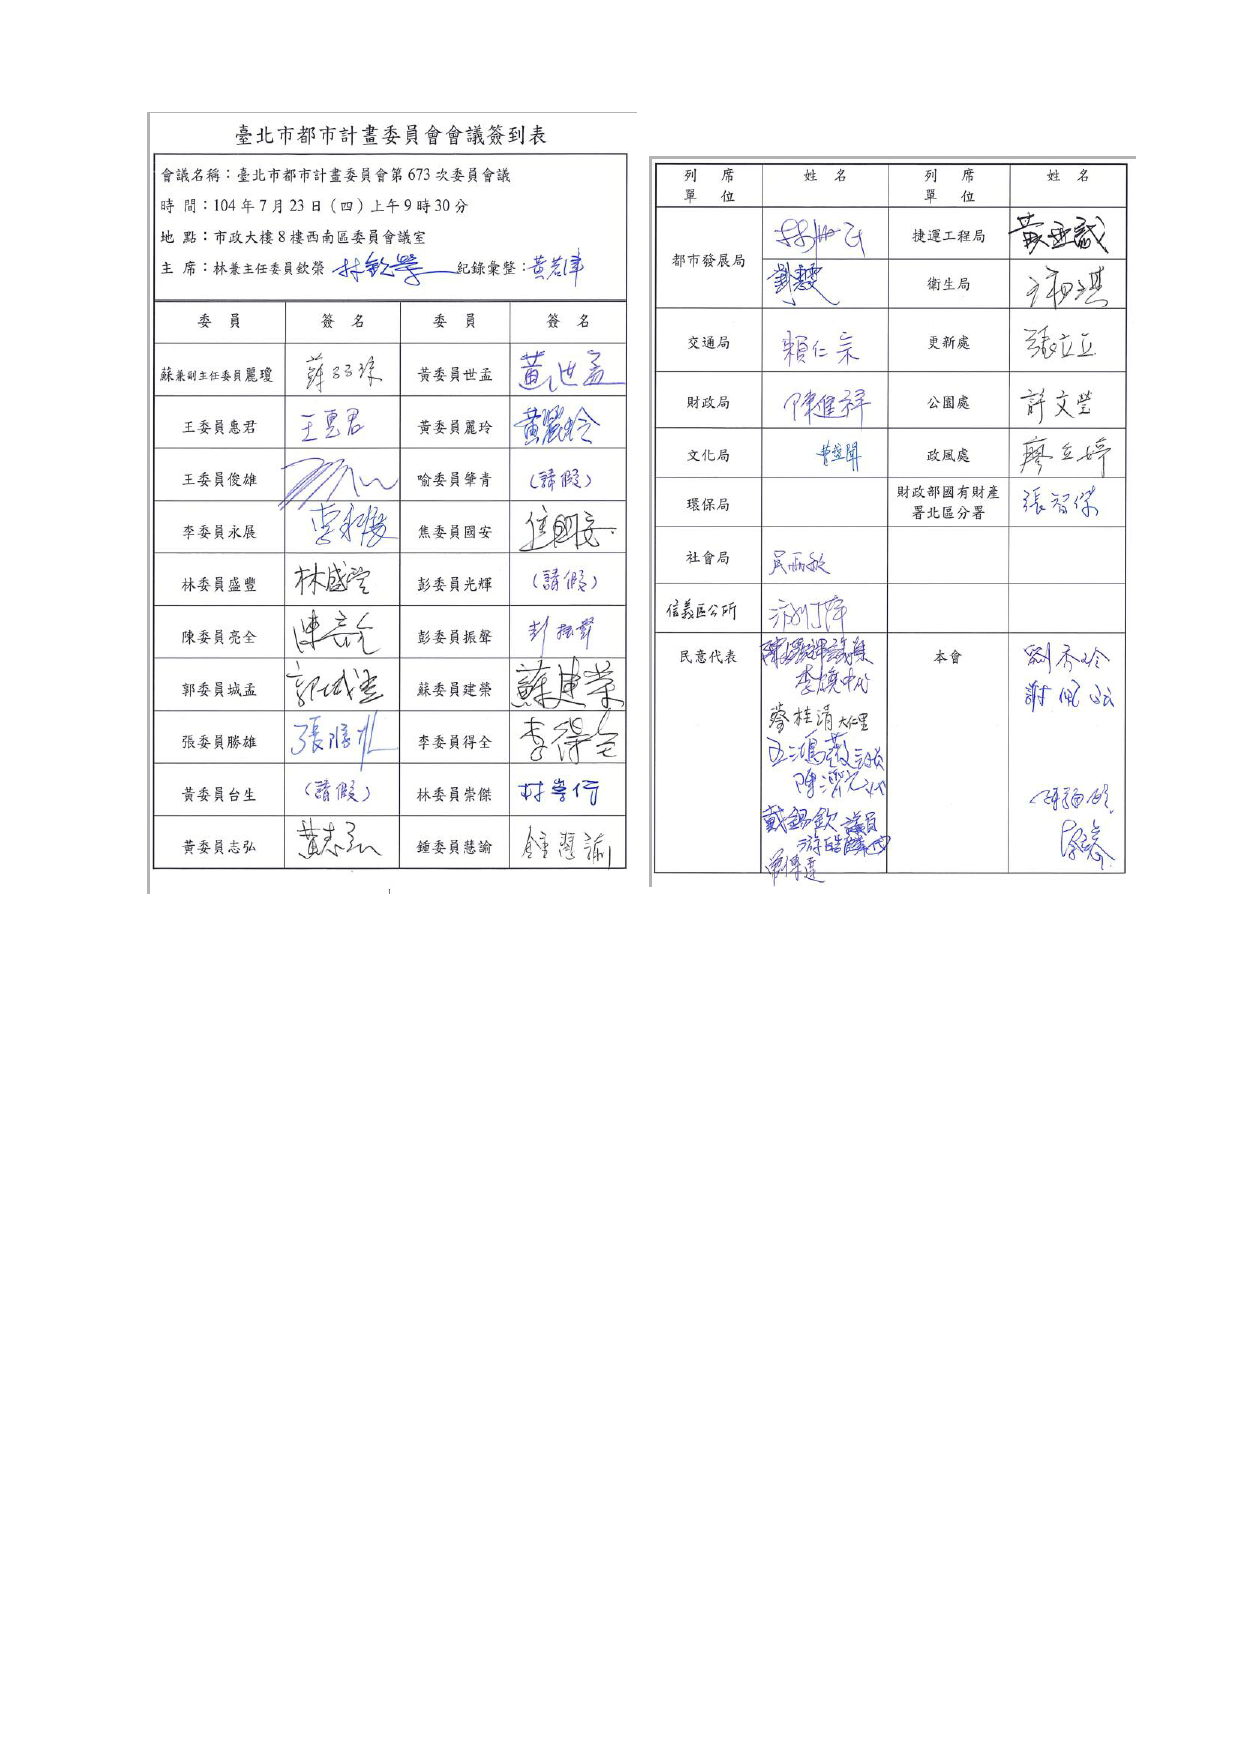 臺北市都市計畫委員會會議簽到表
會議名稱：臺北市都市計畫委員會第 673 次委員會議
時 間：104 年 7 月 23 日（四）上午 9 時 30 分
地 點：市政大樓 8 樓西南區委員會議室
主 席：林兼主任委員欽榮 林欽榮 紀錄彙整：黃若津
委 員 簽 名 委 員 簽 名
蘇兼副主任委員麗瓊 黃委員世孟 黃世孟
王委員惠君 王惠君 黃委員麗玲 黃麗玲
王委員俊雄 喻委員肇青 （請假）
李委員永展 李永展 焦委員國安 焦國安
林委員盛豐 林盛豐 彭委員光輝 （請假）
陳委員亮全 陳亮全 彭委員振聲 彭振聲
郭委員城孟 郭城孟 蘇委員建榮 蘇建榮
張委員勝雄 張勝雄 李委員得全 李得全
黃委員台生 （請假） 林委員崇傑
黃委員志弘 黃志弘 鍾委員慧諭 鍾慧諭
列 席 單 位 姓 名 列 席 單 位 姓 名
都市發展局 捷運工程局
衛生局
交通局 賴仁宗 更新處 張立立
財政局 陳進祥 公園處 許文瑩
文化局 政風處 廖立婷
環保局 財政部國有財產署北區分署 張智傑
社會局
信義區公所
民意代表 本會 劉秀玲
蔡桂清 大仁里
王鴻薇
戴錫欽 議員